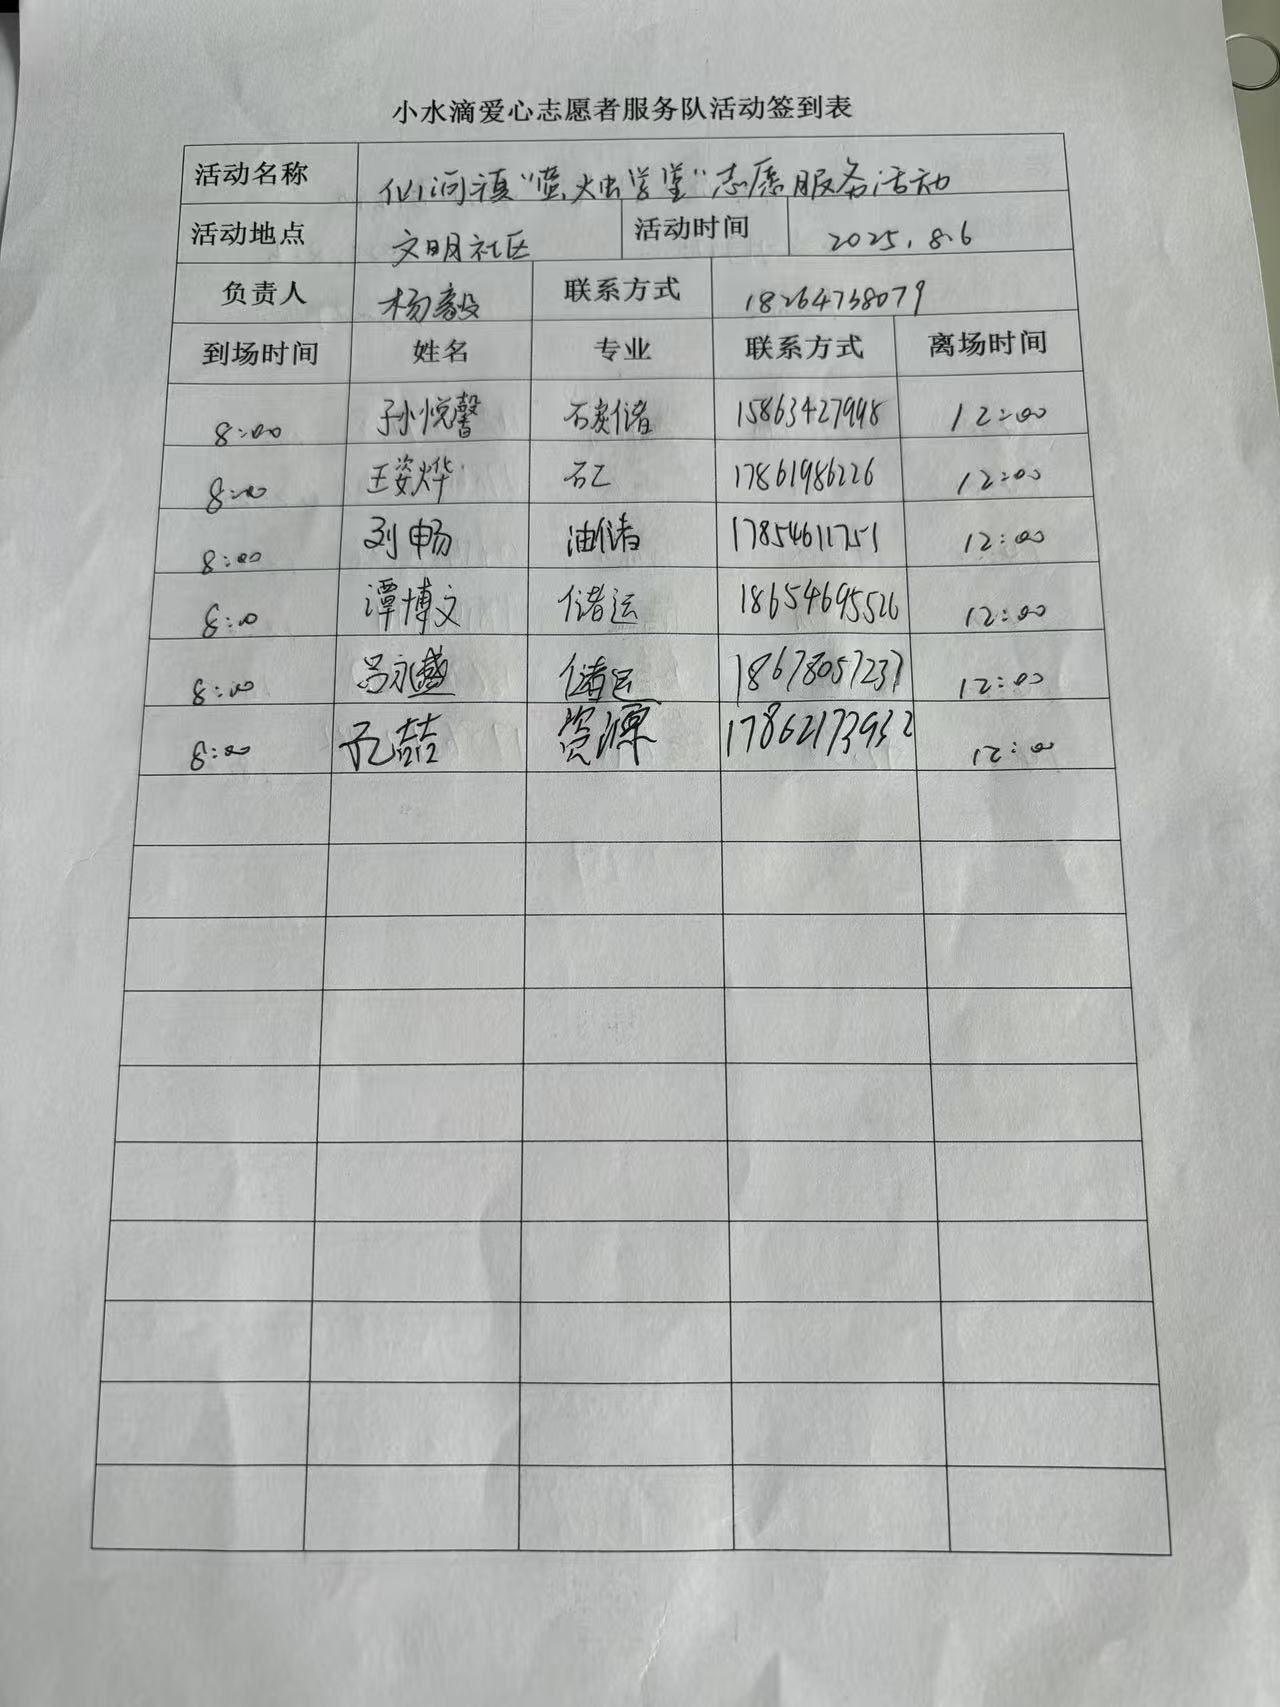 小水滴爱心志愿者服务队活动签到表
活动名称 仙河镇“萤火虫学堂”志愿服务活动
活动地点 文明社区 活动时间 2025.8.6
负责人 杨毅 联系方式 18264738079
到场时间 姓名 专业 联系方式 离场时间
8:00 孙悦馨 石炭储 15863427998 12:00
8:00 王姿烨 石工 17861986226 12:00
8:00 刘畅 油储 17854611751 12:00
8:00 谭博文 储运 18654695526 12:00
8:00 吕永盛 储运 18678057237 12:00
8:00 孔喆 资源 17862173932 12:00